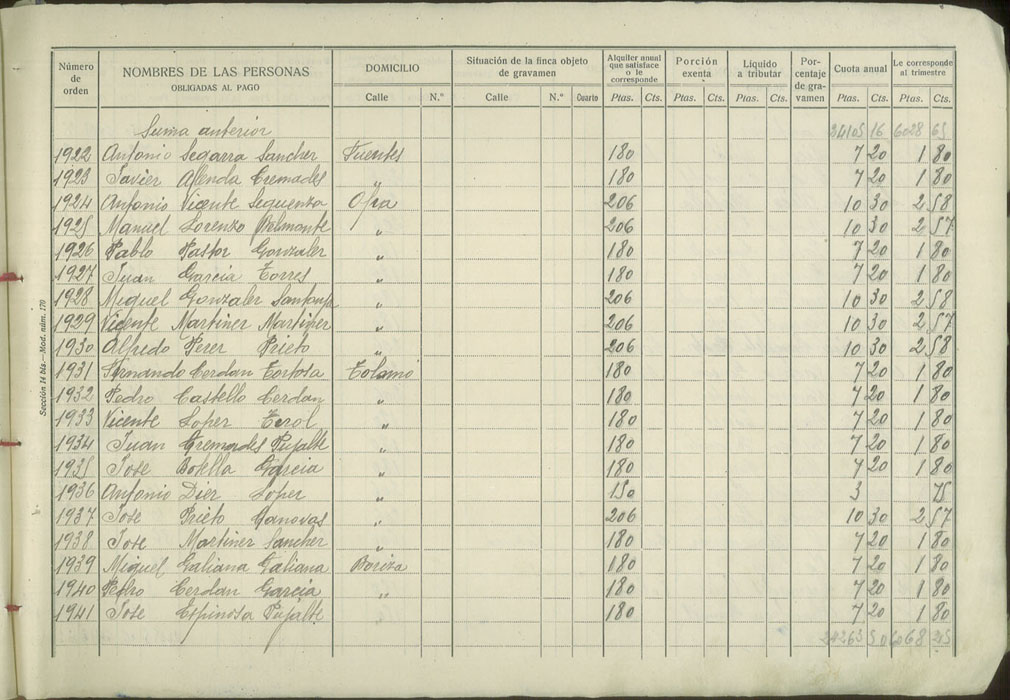 Número de orden NOMBRES DE LAS PERSONAS OBLIGADAS AL PAGO DOMICILIO Situación de la finca objeto de gravamen Alquiler anual que satisface o le corresponde Porción exenta Líquido a tributar Porcentaje de gravamen Cuota anual Le corresponde al trimestre
Calle N.° Calle N.° Cuarto Ptas. Cts. Ptas. Cts. Ptas. Cts. Ptas. Cts. Ptas. Cts.
Suma anterior 24105 16 6028 65
1922 Antonio Segarra Sancher Fuentes 180 7 20 1 80
1923 Javier Allenda Cremades " 180 7 20 1 80
1924 Antonio Vicente Sequenza Ofra 206 10 30 2 58
1925 Manuel Lorenzo Belmonte " 206 10 30 2 57
1926 Pablo Pastor Gonzaler " 180 7 20 1 80
1927 Juan Garcia Torres " 180 7 20 1 80
1928 Miguel Gonzaler " 206 10 30 2 58
1929 Vicente Martiner Martiner " 206 10 30 2 57
1930 Alfredo Perer Prieto " 206 10 30 2 58
1931 Fernando Cerdan Tortosa 180 7 20 1 80
1932 Pedro Castello Cerdan " 180 7 20 1 80
1933 Vicente Loper Terol " 180 7 20 1 80
1934 Juan Cremades Pujalte " 180 7 20 1 80
1935 Jose Botella Garcia " 180 7 20 1 80
1936 Antonio Dier Loper " 150 3 75
1937 Jose Prieto Canovas " 206 10 30 2 57
1938 Jose Martiner Sancher " 180 7 20 1 80
1939 Miguel Galiana Galiana 180 7 20 1 80
1940 Pedro Cerdan Garcia " 180 7 20 1 80
1941 Jose Espinosa Pujalte 180 7 20 1 80
24263 50 6068 25
Sección 14 bis.—Mod. núm. 170